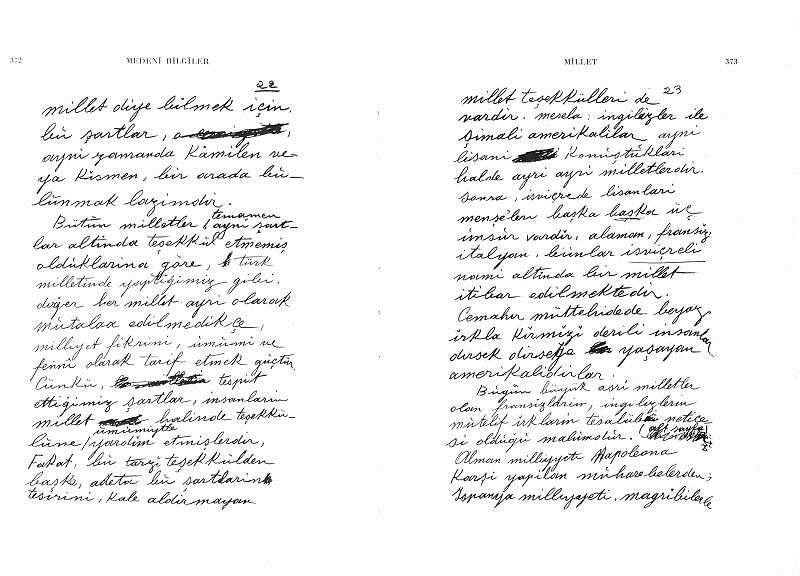 372
MEDENİ BİLGİLER
22
millet diye bilmek için,
bu şartlar,
ayni zamanda Kâmilen ve-
ya Kısmen, bir arada bu-
lunmak lazımdır.
Bütün milletler tamamen ayni şart-
lar altında teşekkül etmemiş
olduklarına göre, türk
milletinde yaptığımız gibi,
diğer her millet ayri olarak
mütalaa edilmedikçe,
milliyet fikrini, umumi ve
fenni olarak tarif etmek güçtür
Çünkü, tespit
ettiğimiz şartlar, insanların
millet halinde teşekkü-
lüne umumiyetle yardım etmişlerdir,
Fakat, bu tarzı teşekkülden
başka, adeta bu şartların
tesirini, kale aldırmayan
MİLLET
373
23
millet teşekkülleri de
vardır. mesela: ingilizler ile
Şimali amerikalilar ayni
lisani Konuştukları
halde ayri ayri milletlerdir.
Sonra, isviçrede lisanları
menşe'leri başka başka üç
unsur vardır, alaman, fransız,
italyan, bunlar isviçreli
nami altında bir millet
itibar edilmektedir.
Cemahır müttehidede beyaz
ırkla Kırmızi derili insanlar
dirsek dirseğe yaşayan
amerikalidirlar.
Bugün büyük asri milletler
olan fransızların, ingilizlerin
mütelif ırkların tesalübü netice
si olduğu malumdur. (alt sayfa)
Alman milliyeti Napoleona
Karşi yapılan muharebelerden;
Ispanya milliyeti, magribilerle